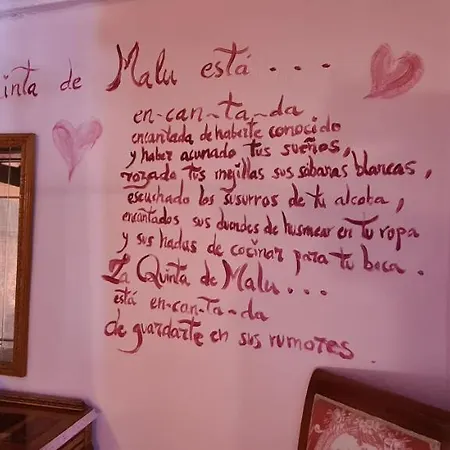 inta de Malu está . . . .
en-can-ta-da
encantada de haberte conocido
y haber acunado tus sueños,
rozado tus mejillas sus sábanas blancas,
escuchado los susurros de tu alcoba,
encantados sus duendes de husmear en tu ropa
y sus hadas de cocinar para tu boca.
La Quinta de Malu . . .
está en-can-ta-da
de guardarte en sus rumores.